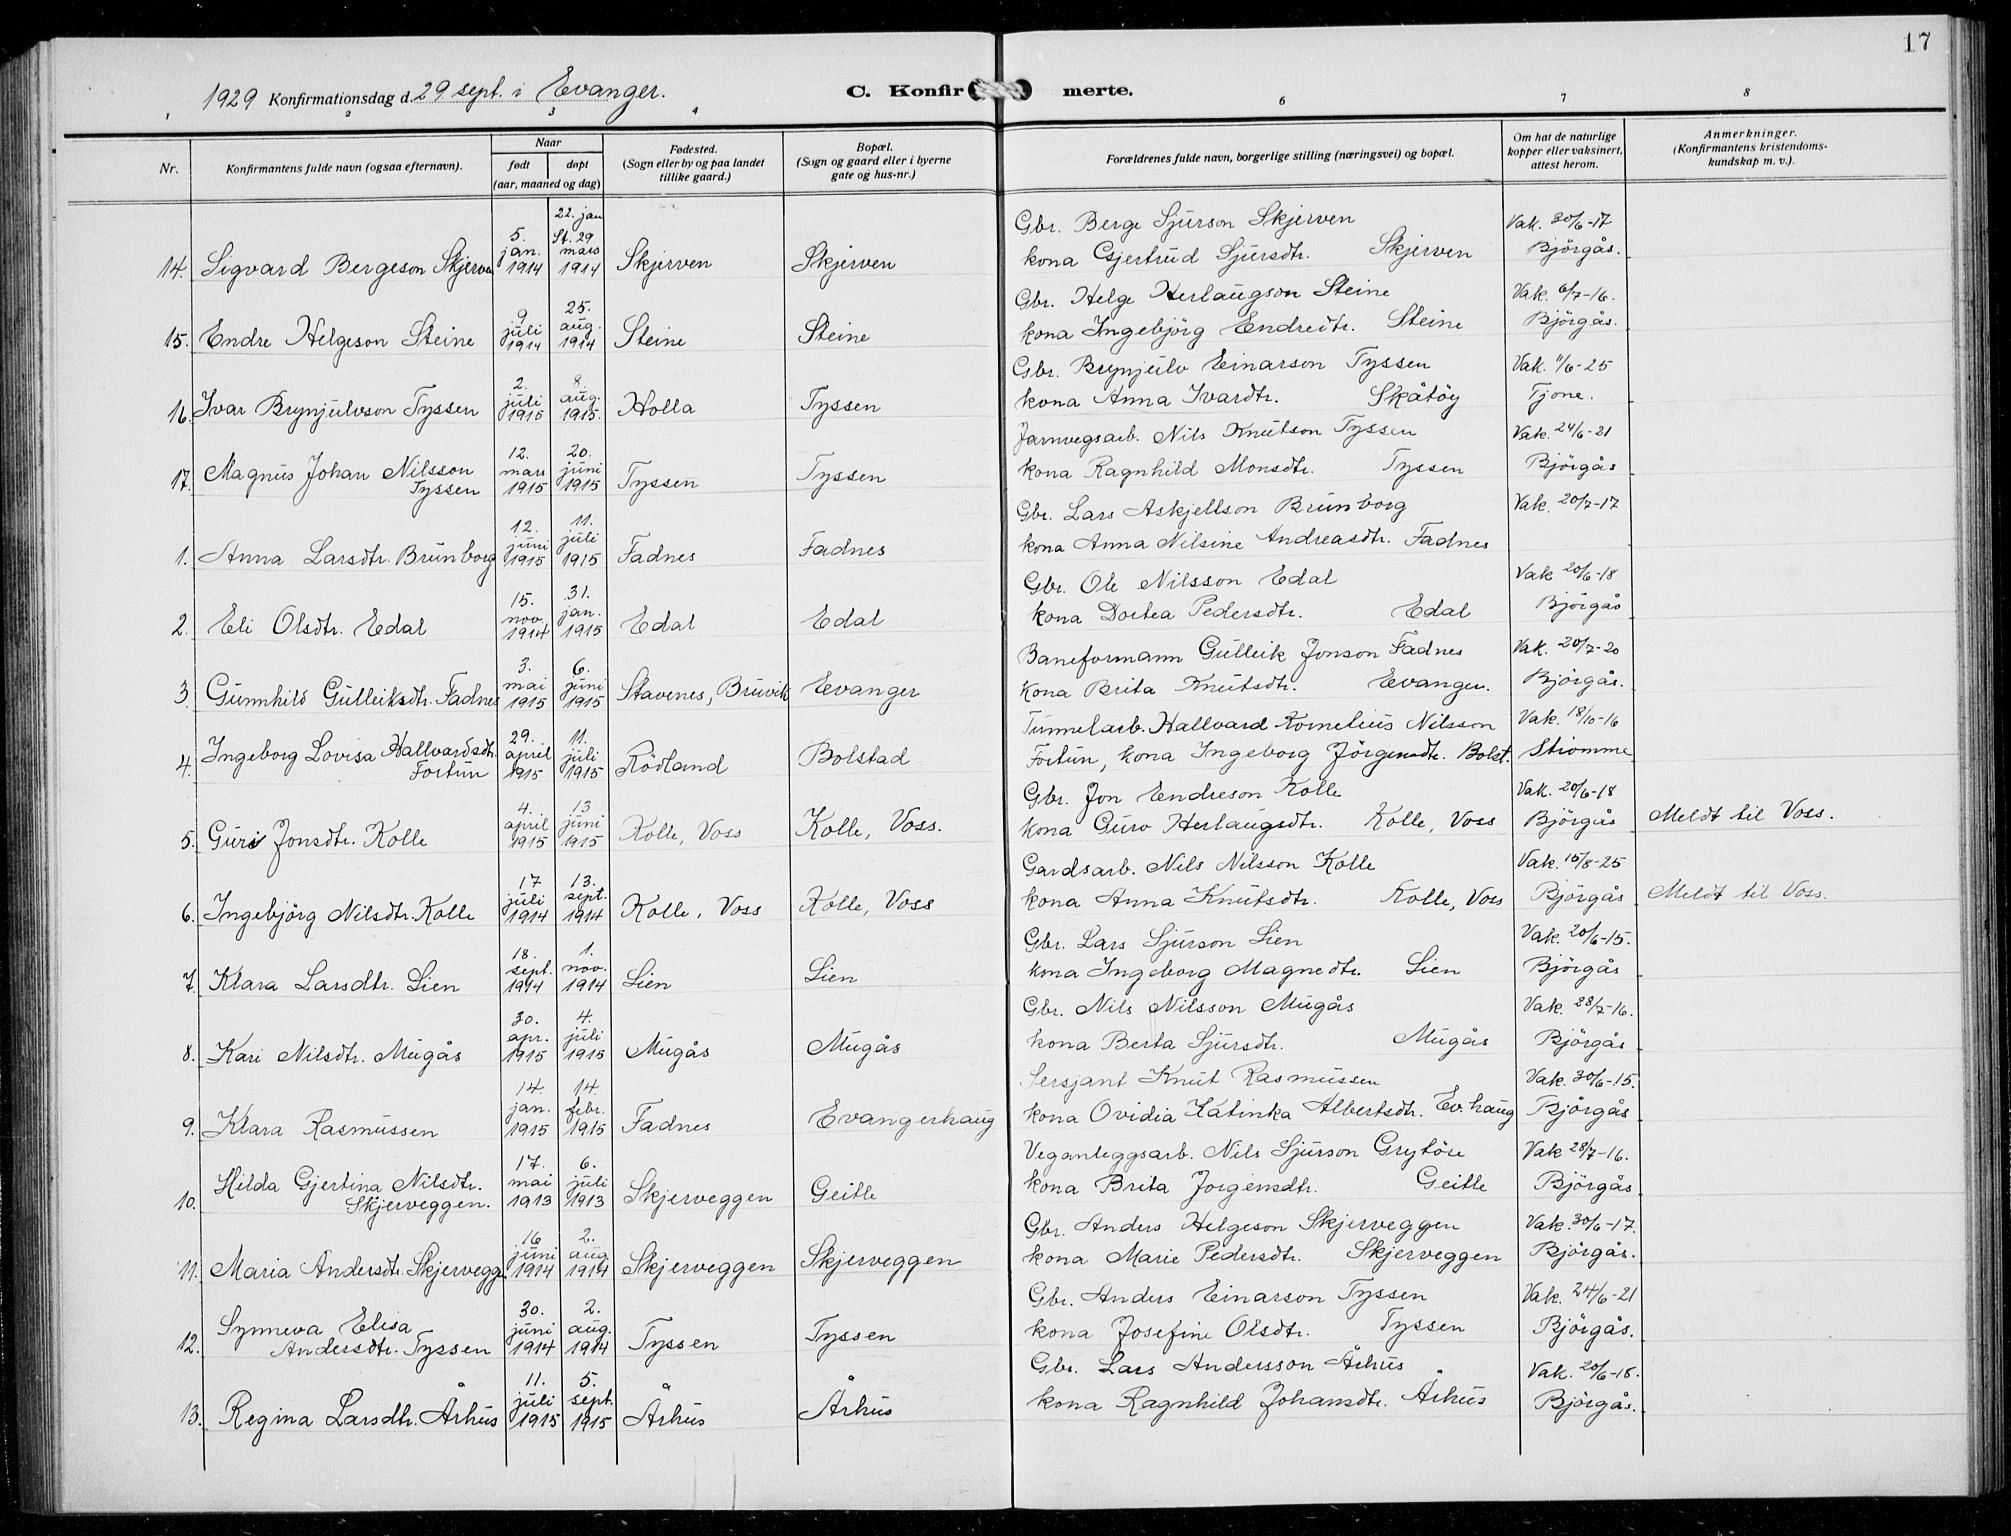 17
1929 Konfirmationsdag d. 29 sept. i Evanger. C. Konfirmerte.
1 2 3 4 6 7 8
Nr. Konfirmantens fulde navn (ogsaa efternavn). Naar født døpt (aar, maaned og dag) Fødested. (Sogn eller by og paa landet tillike gaard.) Bopæl. (Sogn og gaard eller i byerne gate og hus-nr.) Forældrenes fulde navn, borgerlige stilling (næringsvei) og bopæl. Om hat de naturlige kopper eller vaksinert, attest herom. Anmerkninger. (Konfirmantens kristendoms-kundskap m. v.).
14. Sigvard Bergeson Skjerven 5. jan. 1914 22. jan St. 29 mars 1914 Skjerven Skjerven Gbr. Berge Sjurson Skjerven kona Gjertrud Sjursdtr. Skjerven Vak. 30/6-17 Bjørgås.
15. Endre Helgeson Steine 9 juli 1914 25. aug. 1914 Steine Steine Gbr. Helge Herlaugson Steine kona Ingebjörg Endredtr. Steine Vak. 6/7-16. Bjørgås.
16. Ivar Brynjulvson Tyssen 2. juli 1915 8. aug. 1915. Holla Tyssen Gbr. Brynjulv Einarson Tyssen kona Anna Ivardtr. Skåtöy Vak. 11/6-25 Tjone.
17. Magnus Johan Nilsson Tyssen 12. mars 1915 20. juni 1915 Tyssen Tyssen Jarnvegsarb. Nils Knutson Tyssen kona Ragnhild Monsdtr. Tyssen Vak. 24/6-21 Bjørgås
1. Anna Larsdtr. Brunborg 12. juni 1915 11. juli 1915 Fadnes Fadnes Gbr. Lars Askjellson Brunborg kona Anna Nilsine Andreasdtr. Fadnes Vak. 20/7-17
2. Eli Olsdtr. Edal 15. nov. 1914 31. jan. 1915 Edal Edal Gbr. Ole Nilsson Edal kona Dortea Pedersdtr. Edal Vak 20/6-18 Bjørgås
3. Gunnhild Gulleiksdtr. Fadnes 3. mai 1915 6. juni 1915 Stavenes, Bruvik Evanger Baneformann Gulleik Jonson Fadnes kona Brita Knutsdtr. Evanger. Vak. 20/7-20 Bjørgås.
4. Ingeborg Lovisa Hallvardsdtr. Fortun 29. april 1915 11. juli 1915 Rödland Bolstad Tunnelarb. Hallvard Kornelius Nilsson Fortun, kona Ingeborg Jörgensdtr. Bolst. Vak. 18/10-16 Stromme
5. Guri Jonsdtr. Kolle 4. april 1915 13 juni 1915 Kolle, Voss Kolle, Voss. Gbr. Jon Endreson Kolle kona Guro Herlaugsdtr. Kolle, Voss Vak. 20/6-18 Bjørgås Meldt til Voss.
6. Ingebjörg Nilsdtr. Kolle 17 juli 1914 13. sept. 1914 Kolle, Voss Kolle, Voss Gardsarb. Nils Nilsson Kolle kona Anna Knutsdtr. Kolle, Voss Vak. 15/8-25 Bjørgås Meldt til Voss.
7. Klara Larsdtr. Lien 18. sept. 1914 1. nov. 1914 Lien Lien Gbr. Lars Sjurson Lien kona Ingeborg Magnedtr. Lien Vak. 20/6-15. Bjørgås
8. Kari Nilsdtr. Mugås 30. apr. 1915 4. juli 1915 Mugås Mugås Gbr. Nils Nilsson Mugås kona Berta Sjursdtr. Mugås Vak. 28/7-16. Bjørgås
9. Klara Rasmussen 14. jan. 1915 14. febr. 1915 Fadnes Evangerhaug Sersjant Knut Rasmussen kona Ovidia Katinka Albertsdtr. Ev.haug Vak. 30/6-15. Bjørgås
10. Hilda Gjertina Nilsdtr. Skjerveggen. 17. mai 1913 6. juli 1913 Skjerveggen Geitle Veganleggsarb. Nils Sjurson Grytöre kona Brita Jorgensdtr. Geitle Vak 28/7-16. Bjørgås
11. Maria Andersdtr. Skjervegg 16 juni 1914 2. aug. 1914 Skjerveggen Skjerveggen Gbr. Anders Helgeson Skjerveggen kona Marie Pedersdtr. Skjerveggen Vak. 30/6-17. Bjørgås.
12. Synneva Elisa Andersdtr. Tyssen 30. juni 1914 2. aug. 1914 Tyssen Tyssen Gbr. Anders Einarson Tyssen kona Josefine Olsdtr. Tyssen Vak. 24/6-21 Bjørgås.
13. Regina Larsdtr. Århus 11. juli 1915 5. sept. 1915 Århus Århus Gbr. Lars Andersson Århus kona Ragnhild Johansdtr. Århus Vak. 20/6-18. Bjørgås.